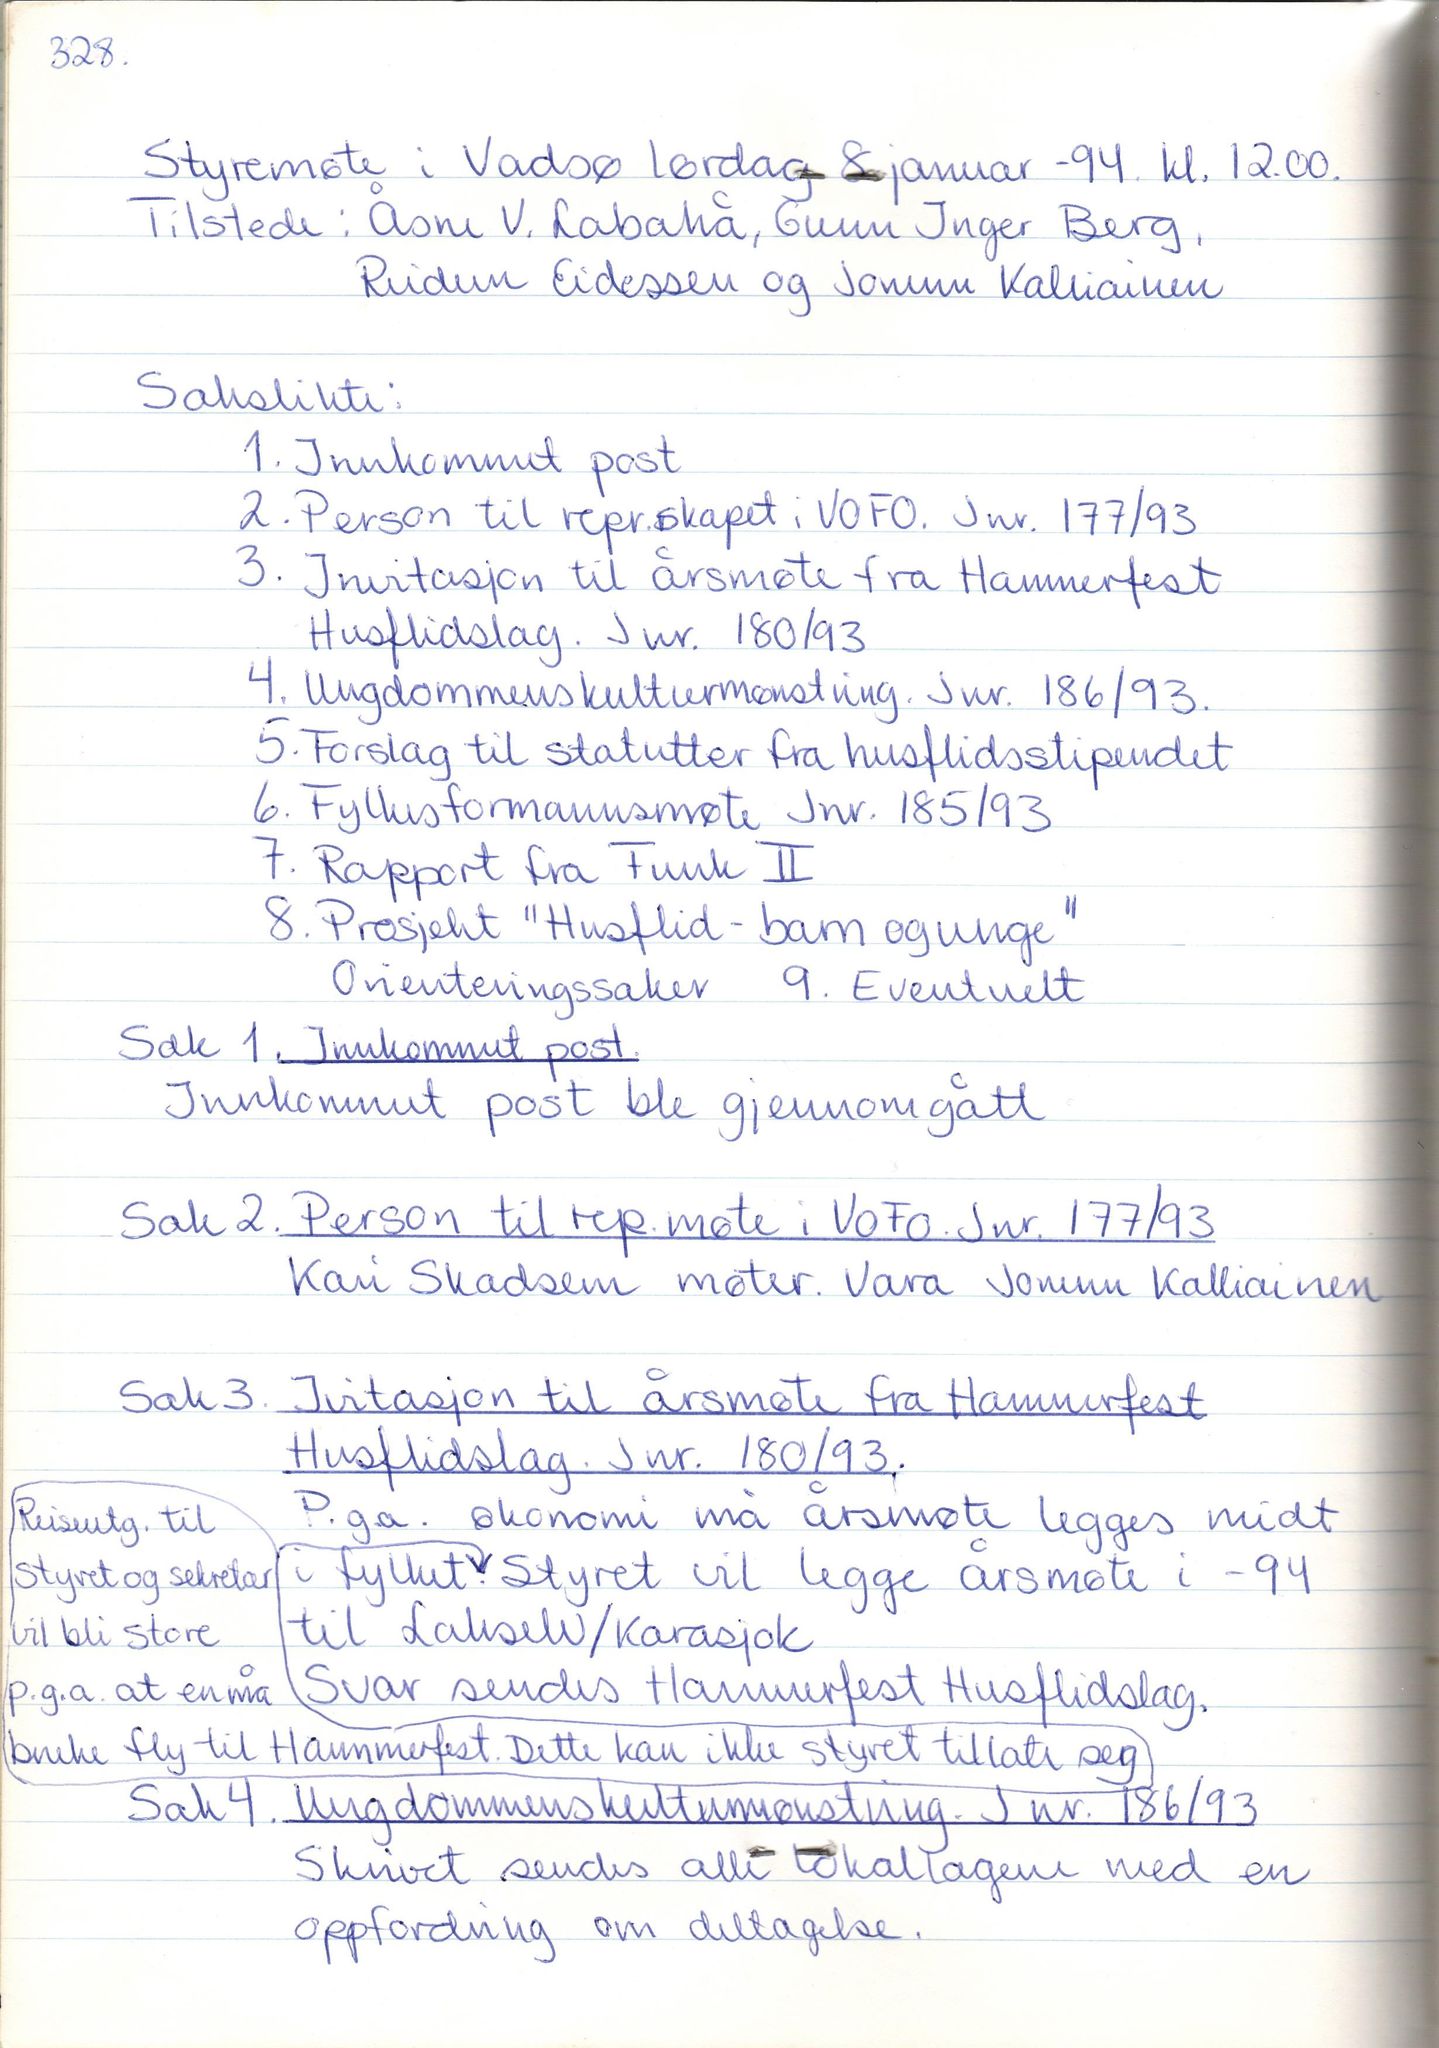 328.
Styremøte i Vadsø lørdag 8 januar -94. kl. 12.00.
Tilstede: Åsne V. Labahå, Gunn Inger Berg,
Reidun Eidessen og Jorunn Kalliainen
Saksliste:
1. Innkommet post
2. Person til repr.skapet i VOFO. Jnr. 177/93
3. Invitasjon til årsmøte fra Hammerfest
Husflidslag. Jnr. 180/93
4. Ungdommenskulturmønstring. Jnr. 186/93.
5. Forslag til statutter fra husflidsstipendet
6. Fylkesformannsmøte Jnr. 185/93
7. Rapport fra Funk II
8. Prosjekt "Husflid - barn og unge"
Orienteringssaker 9. Eventuelt
Sak 1. Innkommet post.
Innkommet post ble gjennomgått
Sak 2. Person til rep.møte i VOFO. Jnr. 177/93
Kari Skadsem møter. Vara Jorunn Kalliainen
Sak 3. Ivitasjon til årsmøte fra Hammerfest
Husflidslag. Jnr. 180/93.
P.g.a. økonomi må årsmøte legges midt
i fylket. Styret vil legge årsmøte i -94
til Lakselv/Karasjok
Svar sendes Hammerfest Husflidslag.
Reiseutg. til
styret og sekretær
vil bli store
p.g.a. at en må
bruke fly til Hammerfest. Dette kan ikke styret tillate seg
Sak 4. Ungdommenskulturmønstring. Jnr. 186/93
Skrivet sendes alle lokallagene med en
oppfordring om deltagelse.